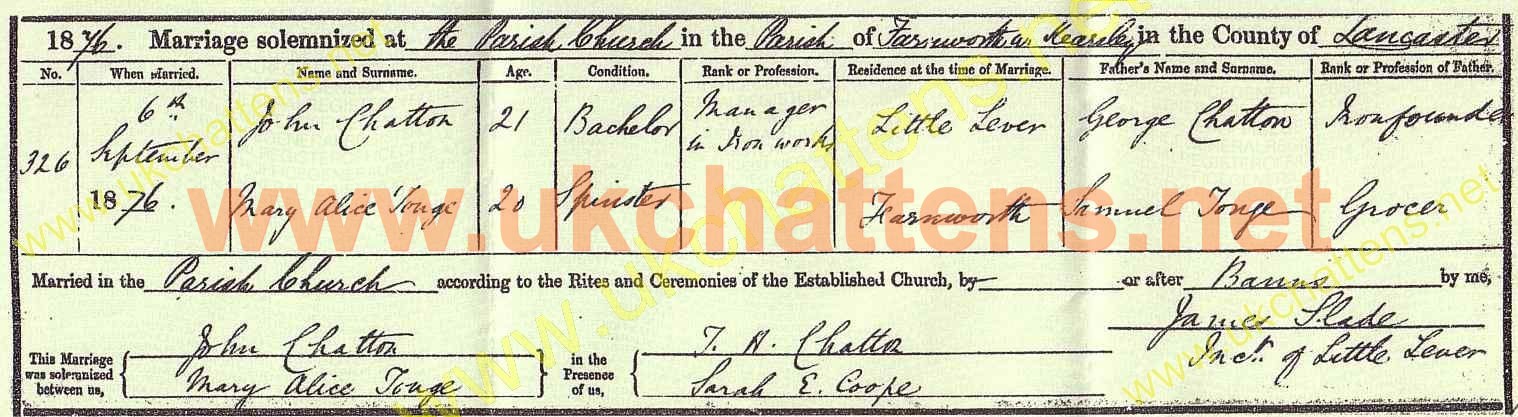 1876. Marriage solemnized at the Parish Church in the Parish of Farnworth w Kearsley in the County of Lancaster
No. When Married. Name and Surname. Age. Condition. Rank or Profession. Residence at the time of Marriage. Father's Name and Surname. Rank or Profession of Father.
326 6th September 1876. John Chatton 21 Bachelor Manager in Ironworks Little Lever George Chatton Ironfounder
Mary Alice Tonge 20 Spinster Farnworth Samuel Tonge Grocer
Married in the Parish Church according to the Rites and Ceremonies of the Established Church, by or after Banns by me,
James Slade
Inct. of Little Lever
This Marriage was solemnized between us, John Chatton in the Presence of us, T. H. Chatton
Mary Alice Tonge Sarah E. Coope
www.ukchattens.net
www.ukchattens.net
www.ukchattens.net
www.ukchattens.net